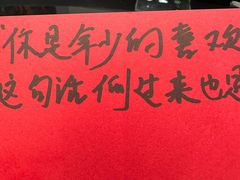 你是年少的喜欢
这句话倒过来也是